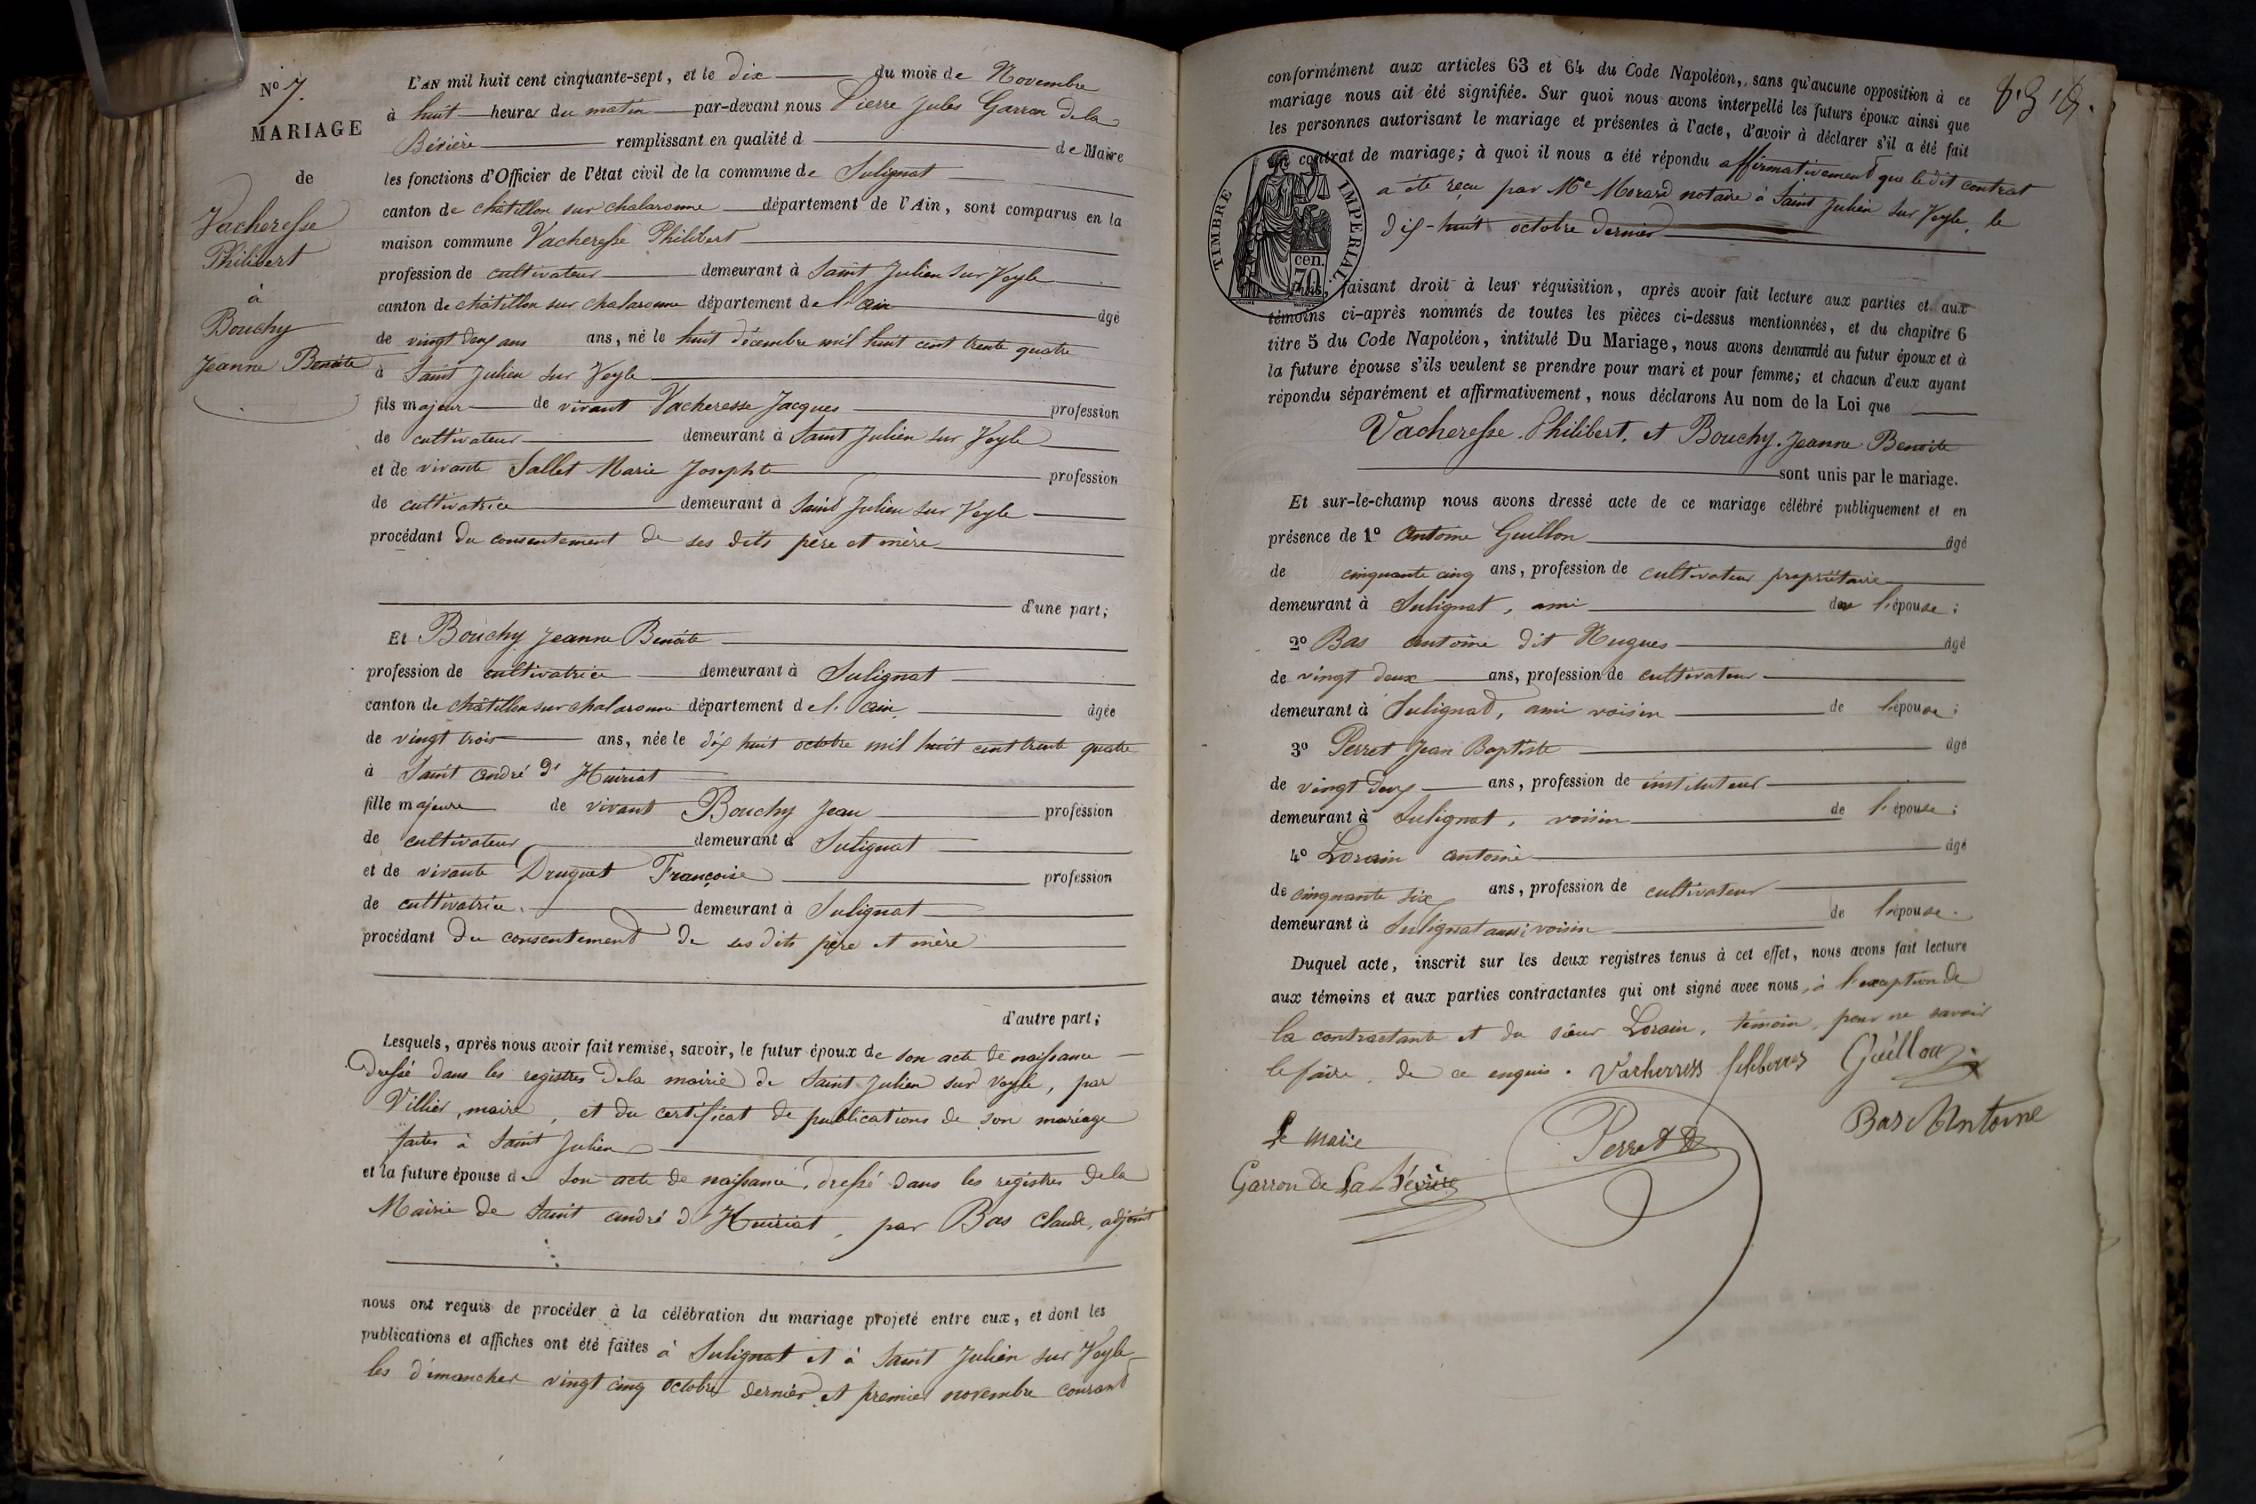 N° 7.
MARIAGE
de
Vacheresse
Philibert
à
Bouchy
Jeanne Benoite
L'AN mil huit cent cinquante-sept, et le dix du mois de Novembre
à huit heures du matin par-devant nous Pierre Jules Garron de la
Bévière remplissant en qualité d de Maire
les fonctions d'Officier de l'état civil de la commune de Sulignat
canton de châtillon sur chalaronne département de l'Ain, sont comparus en la
maison commune Vacheresse Philibert
profession de cultivateur demeurant à Saint Julien sur Veyle
canton de châtillon sur chalaronne département de l'ain âgé
de vingt deux ans ans, né le huit décembre mil huit cent trente quatre
à Saint Julien sur Veyle
fils majeur de vivant Vacheresse Jacques profession
de cultivateur demeurant à Saint Julien sur Veyle
et de vivante Sallet Marie Josephte profession
de cultivatrice demeurant à Saint Julien sur Veyle
procédant du consentement de ses dits père et mère
d'une part;
Et Bouchy Jeanne Benoite
profession de cultivatrice demeurant à Sulignat
canton de châtillon sur chalaronne département de l'ain âgée
de vingt trois ans, née le dix huit octobre mil huit cent trente quatre
à Saint andré d'Huiriat
fille majeure de vivant Bouchy Jean profession
de cultivateur demeurant à Sulignat
et de vivante Druguet Françoise profession
de cultivatrice demeurant à Sulignat
procédant du consentement de ses dits père et mère
d'autre part;
Lesquels, après nous avoir fait remise, savoir, le futur époux de son acte de naissance
dressé dans les registres de la mairie de Saint Julien sur veyle, par
Villier, maire, et du certificat de publications de son mariage
faites à Saint Julien
et la future épouse de son acte de naissance, dressé dans les registres de la
Mairie de Saint andré d'Huiriat, par Bas Claude, adjoint
nous ont requis de procéder à la célébration du mariage projeté entre eux, et dont les
publications et affiches ont été faites à Sulignat et à Saint Julien sur Veyle
les dimanches vingt cinq octobre dernier et premier novembre courant
conformément aux articles 63 et 64 du Code Napoléon, sans qu'aucune opposition à ce
mariage nous ait été signifiée. Sur quoi nous avons interpellé les futurs époux ainsi que
les personnes autorisant le mariage et présentes à l'acte, d'avoir à déclarer s'il a été fait
un contrat de mariage; à quoi il nous a été répondu affirmativement que le dit contrat
a été reçu par Me Morard notaire à Saint Julien sur Veyle, le
dix-huit octobre dernier
TIMBRE IMPERIAL
cen.
70
faisant droit à leur réquisition, après avoir fait lecture aux parties et aux
témoins ci-après nommés de toutes les pièces ci-dessus mentionnées, et du chapitre 6
titre 5 du Code Napoléon, intitulé Du Mariage, nous avons demandé au futur époux et à
la future épouse s'ils veulent se prendre pour mari et pour femme; et chacun d'eux ayant
répondu séparément et affirmativement, nous déclarons Au nom de la Loi que
Vacheresse Philibert, et Bouchy Jeanne Benoite
sont unis par le mariage.
Et sur-le-champ nous avons dressé acte de ce mariage célébré publiquement et en
présence de 1° Antoine Guillon âgé
de cinquante cinq ans, profession de cultivateur propriétaire
demeurant à Sulignat, ami de l'épouse;
2° Bas antoine dit Hugues âgé
de vingt deux ans, profession de cultivateur
demeurant à Sulignat, ami voisin de l'épouse;
3° Perret Jean Baptiste âgé
de vingt deux ans, profession de instituteur
demeurant à Sulignat, voisin de l'épouse;
4° Lorain antoine âgé
de cinquante six ans, profession de cultivateur
demeurant à Sulignat aussi voisin de l'épouse.
Duquel acte, inscrit sur les deux registres tenus à cet effet, nous avons fait lecture
aux témoins et aux parties contractantes qui ont signé avec nous, à l'exception de
la contractante et du sieur Lorain, témoin, pour ne savoir
le faire, de ce enquis. Guillon
Bas Antoine
Le Maire
Perret
Garron De La Bévière